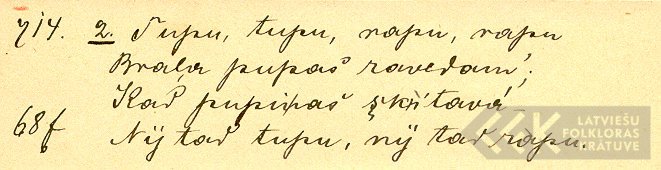 714. 2. Tupu, tupu, rapu, rapu
Braļa pupas ravedam';
Kad pupiņas škitavā
68f Nij tad tupu, nij tad rapu.
LATVIEŠU
FOLKLORAS
KRĀTUVE